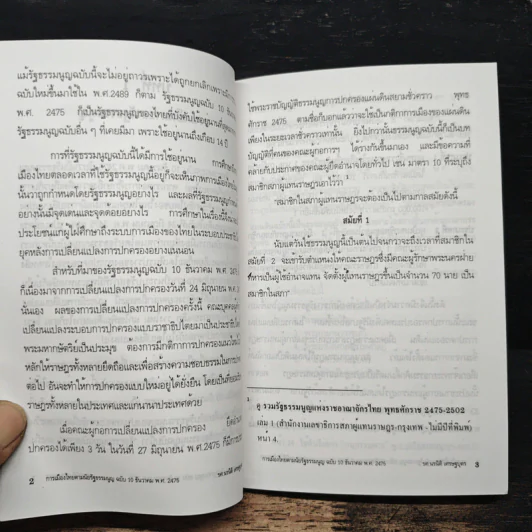 แม้รัฐธรรมนูญฉบับนี้จะไม่อยู่ถาวรเพราะได้ถูกยกเลิกเพราะมี
ฉบับใหม่ขึ้นมาใช้ใน พ.ศ.2489 ก็ตาม รัฐธรรมนูญฉบับ 10 ธันวา
พ.ศ. 2475 ก็เป็นรัฐธรรมนูญของไทยที่บังคับใช้อยู่นานที่สุด
รัฐธรรมนูญฉบับอื่น ๆ ที่เคยมีมา เพราะใช้อยู่นานถึงเกือบ 14 ปี
การที่รัฐธรรมนูญฉบับนี้ได้มีการใช้อยู่นาน การศึกษาถึง
เมืองไทยตลอดเวลาที่ใช้รัฐธรรมนูญนี้อยู่ก็จะเห็นภาพการเมืองไทย
นั้นว่าถูกกำหนดโดยรัฐธรรมนูญอย่างไร และผลที่รัฐธรรมนูญกำหนด
อย่างนั้นมีจุดเด่นและจุดด้อยอย่างไร การศึกษาในเรื่องนี้
ประโยชน์แก่ผู้ใฝ่ศึกษาถึงระบบการเมืองของไทยในระบอบประชาธิป
ยุคหลังการเปลี่ยนแปลงการปกครองอย่างแน่นอน
สำหรับที่มาของรัฐธรรมนูญฉบับ 10 ธันวาคม พ.ศ. 247
ก็เนื่องมาจากการเปลี่ยนแปลงการปกครองวันที่ 24 มิถุนายน พ.ศ.
นั่นเอง ผลของการเปลี่ยนแปลงการปกครองครั้งนี้ คณะบุคคล
เปลี่ยนแปลงระบอบการปกครองแบบราชาธิปไตยมาเป็นประชาธิปไตย
พระมหากษัตริย์เป็นประมุข ต้องการมีกติกาการปกครอง
หลักให้ราษฎรทั้งหลายยึดถือและเพื่อสร้างความชอบธรรมในการ
ต่อไป อันจะทำให้การปกครองแบบใหม่อยู่ได้ยั่งยืน โดยเป็นที่ยอมรับ
ราษฎรทั้งหลายในประเทศและแก่นานาประเทศด้วย
เมื่อคณะผู้ก่อการเปลี่ยนแปลงการปกครอง
ปกครองได้เพียง 3 วัน ในวันที่ 27 มิถุนายน พ.ศ.2475 ก็มีการ
2 การเมืองไทยตามนัยรัฐธรรมนูญ ฉบับ 10 ธันวาคม พ.ศ. 2475
ใช้พระราชบัญญัติธรรมนูญการปกครองแผ่นดินสยามชั่วคราว พุทธ
ศักราช 2475 ตามชื่อก็บอกแล้วว่าจะใช้เป็นกติกาการเมืองของแผ่นดิน
เพียงในระยะเวลาชั่วคราวเท่านั้น ยิ่งไปกว่านั้นธรรมนูญฉบับนี้ก็เป็นบท
บัญญัติที่คนของคณะผู้ก่อการฯ ได้ร่างกันขึ้นมาเอง และมีข้อความที่
คล้ายกับประกาศของคณะผู้ยึดอำนาจโดยทั่วไป เช่น มาตรา 10 ที่ระบุถึง
สมาชิกสภาผู้แทนราษฎรเอาไว้ว่า¹
"สมาชิกในสภาผู้แทนราษฎรจะต้องเป็นไปตามกาลสมัยดังนี้
สมัยที่ 1
นับแต่วันใช้ธรรมนูญนี้เป็นต้นไปจนกว่าจะถึงเวลาที่สมาชิกใน
สมัยที่ 2 จะเข้ารับตำแหน่งให้คณะราษฎรซึ่งมีคณะผู้รักษาพระนครฝ่าย
ทหารเป็นผู้ใช้อำนาจแทน จัดตั้งผู้แทนราษฎรขึ้นเป็นจำนวน 70 นาย เป็น
สมาชิกในสภา"
¹ ดู รวมรัฐธรรมนูญแห่งราชอาณาจักรไทย พุทธศักราช 2475-2502
เล่ม 1 (สำนักงานเลขาธิการสภาผู้แทนราษฎร:กรุงเทพ -ไม่มีปีที่พิมพ์)
หน้า 4.
การเมืองไทยตามนัยรัฐธรรมนูญ ฉบับ 10 ธันวาคม พ.ศ. 2475 รศ.นรนิติ เศรษฐบุตร 3